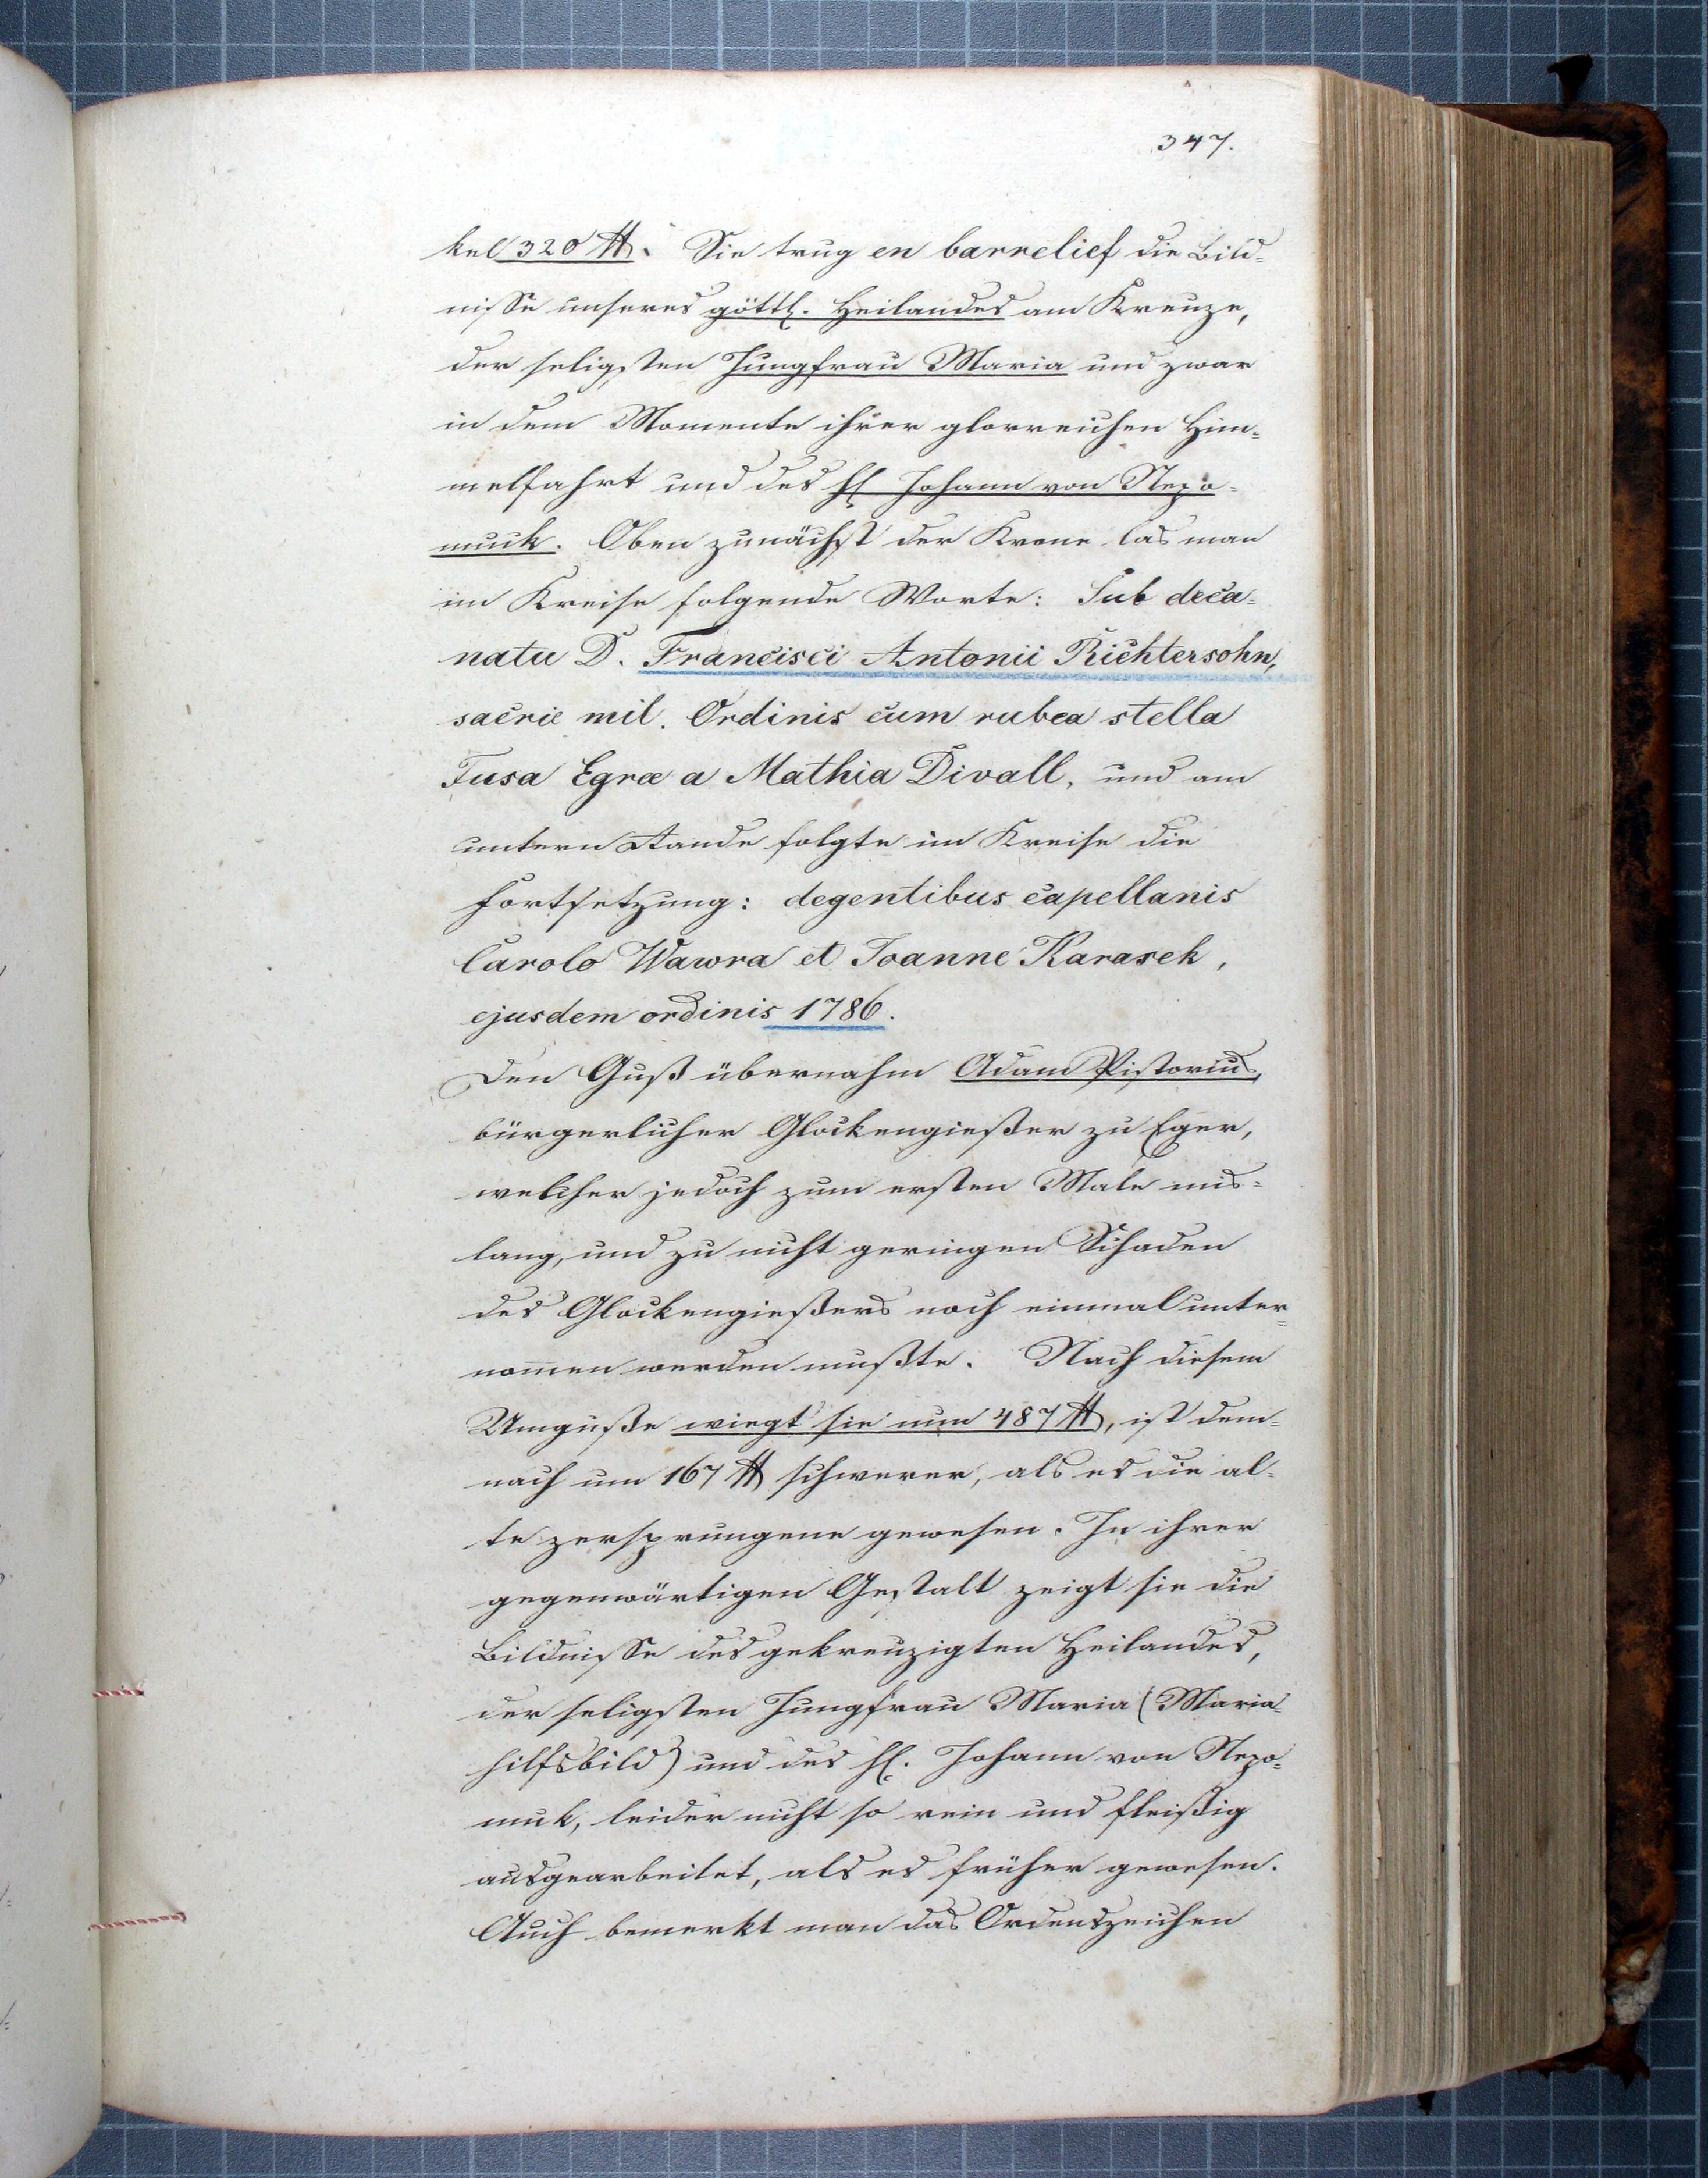 347.
kel 320 ℔. Sie trug en barrelief die Bild=
nisse unseres göttl. Heilandes am Kreuze,
der seligsten Jungfrau Maria und zwar
in dem Momente ihrer glorreichen Him=
melfahrt und des hl Johann von Nepo=
muck. Oben zunächst der Krone las man
im Kreise folgende Worte: Sub deca=
natu D. Francisci Antonii Richtersohn,
sacrie mil. Ordinis cum rubea stella
Fusa Egræ a Mathia Divall, und am
untern Rande folgte im Kreise die
Fortsetzung: degentibus capellanis
Carolo Wawra et Joanne Karasek,
ejusdem ordinis 1786.
Den Guß übernahm Adam Pistorius,
bürgerlicher Glockengießer zu Eger,
welcher jedoch zum ersten Male mis=
lang, und zu nicht geringen Schaden
des Glockengießers noch einmal unter=
nom̄en werden mußte. Nach diesem
Umguße wiegt sie nun 487 ℔, ist dem=
nach um 167 ℔ schwerer, als es die al=
te zersprungene gewesen. In ihrer
gegenwärtigen Gestalt zeigt sie die
Bildnisse des gekreuzigten Heilandes,
der seligsten Jungfrau Maria (Maria=
hilfsbild) und des hl. Johann von Nepo=
muk, leider nicht so rein und fleißig
ausgearbeitet, als es früher gewesen.
Auch bemerkt man das Ordenszeichen